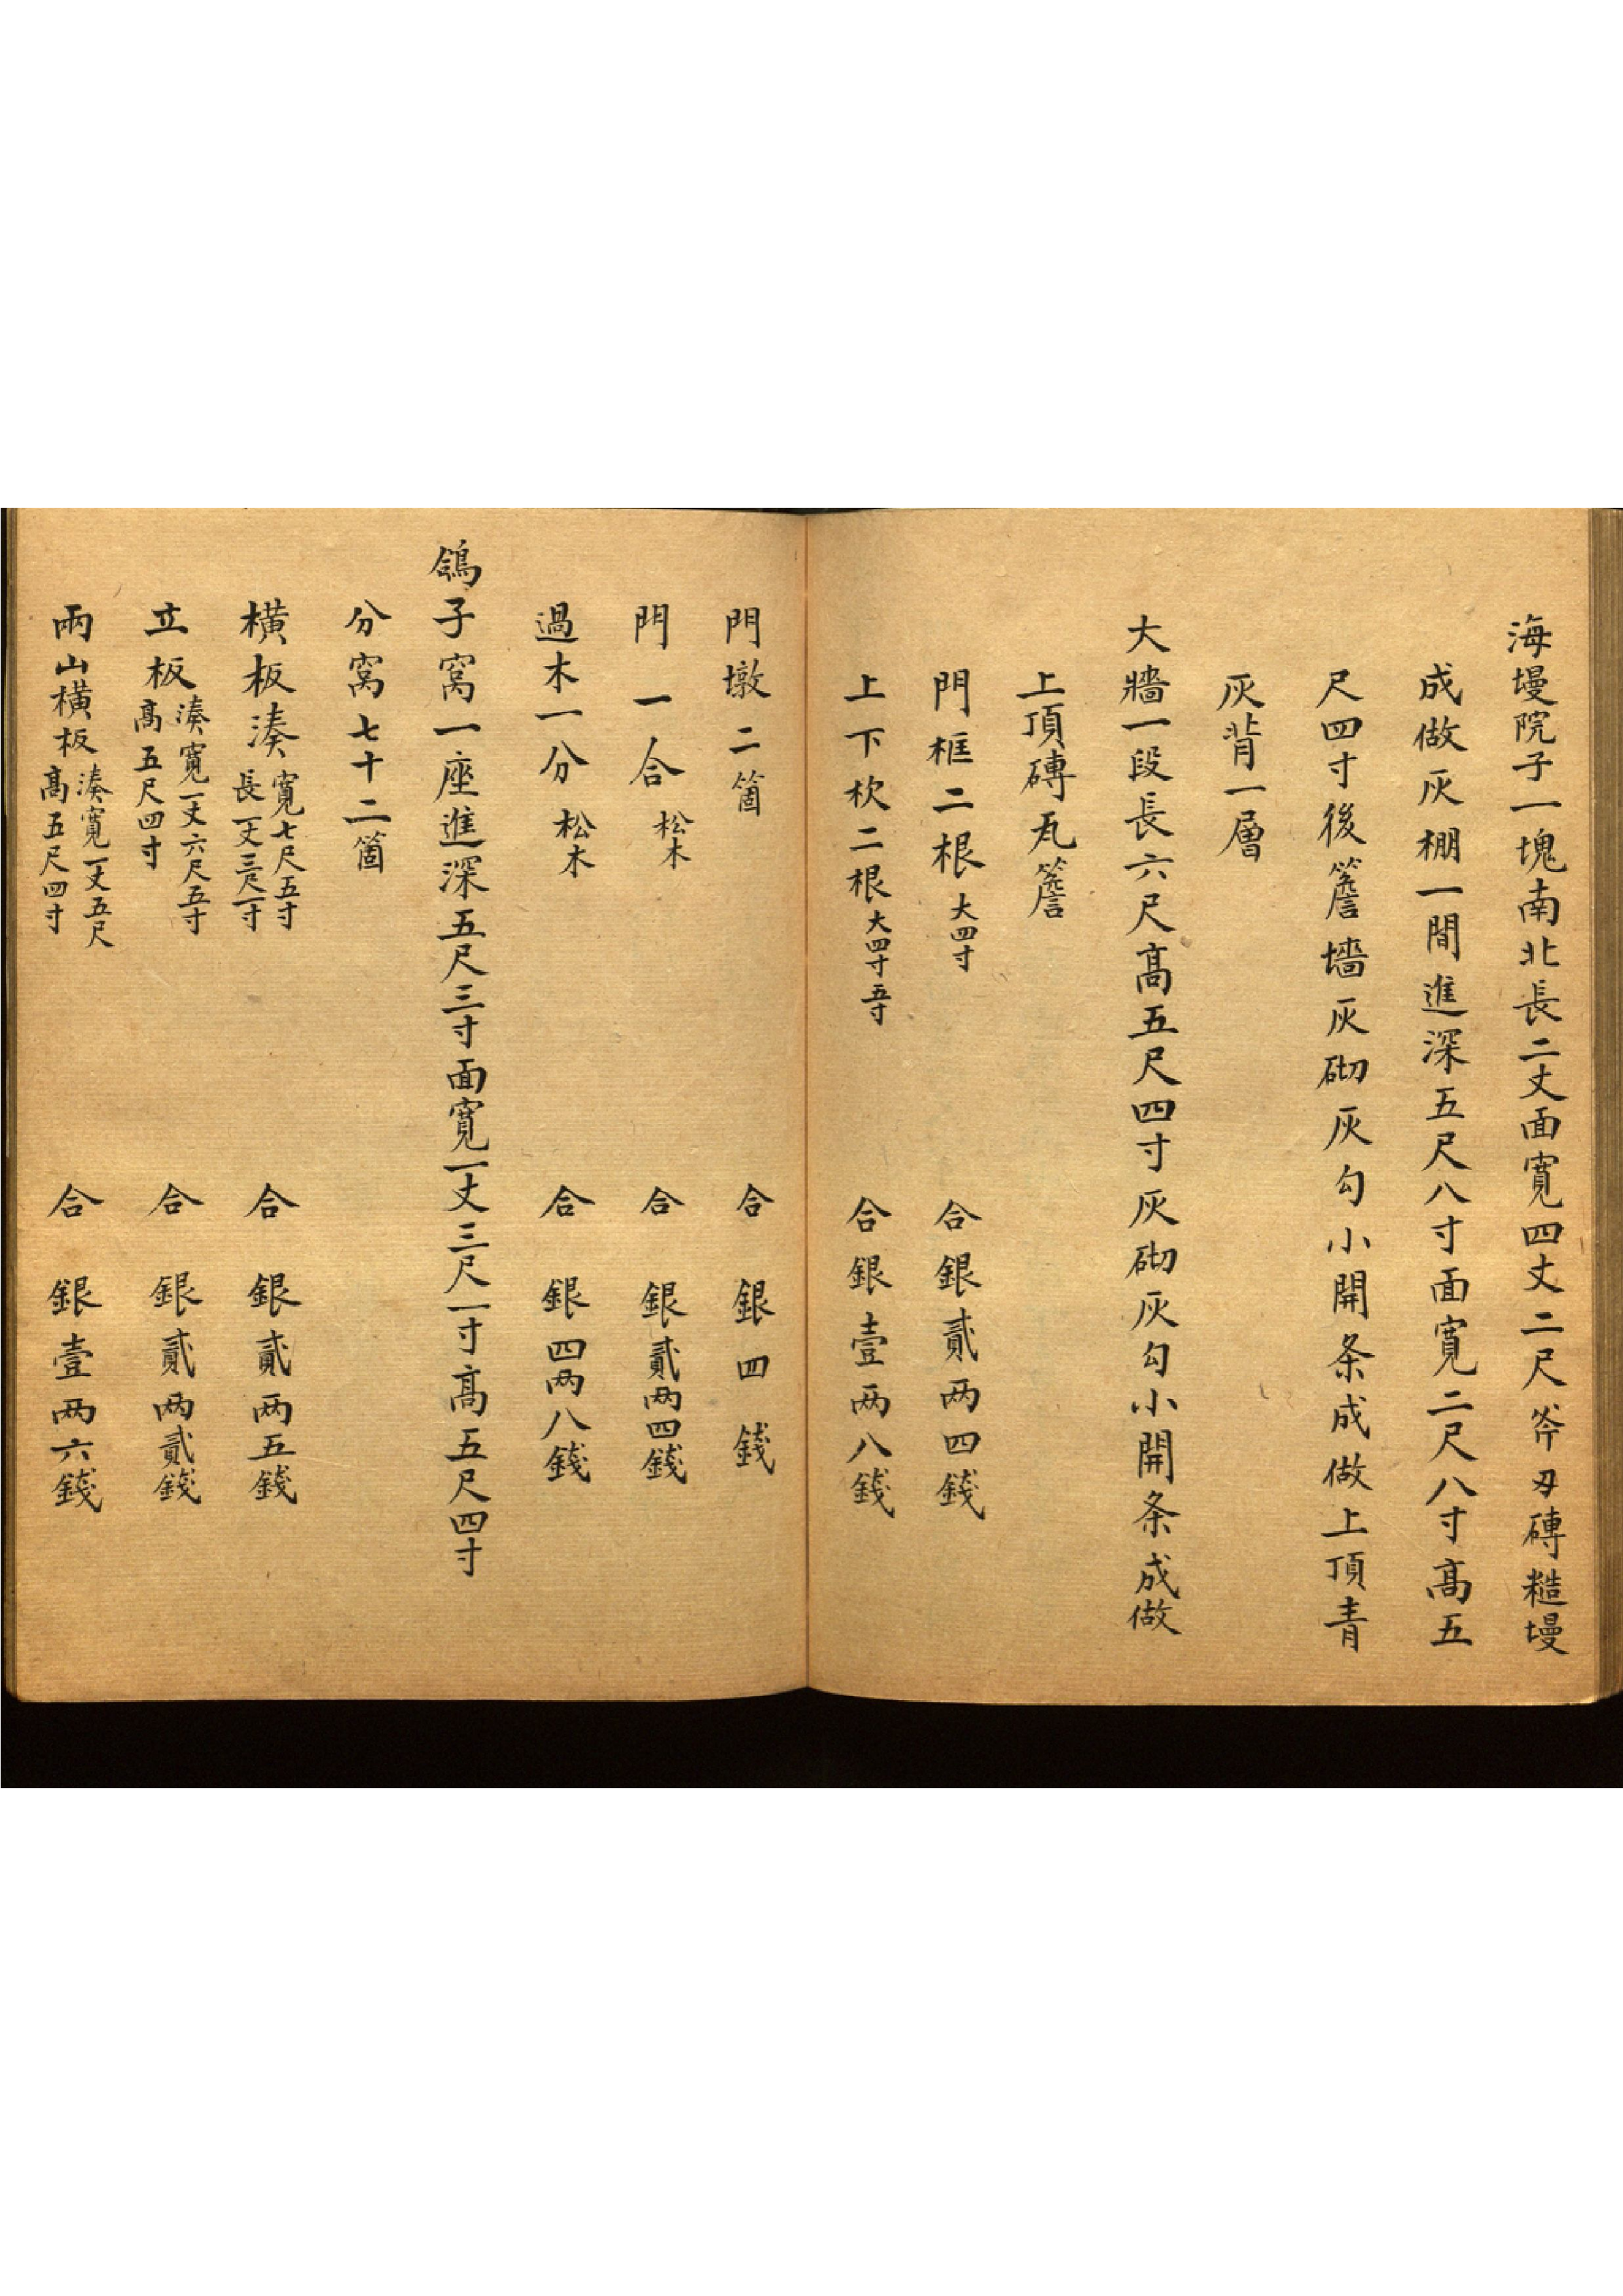 海墁院子一塊南北長二丈面寬四丈二尺斧刃磚糙墁
成做灰棚一間進深五尺八寸面寬二尺八寸高五
尺四寸後簷墻灰砌灰勾小開条成做上頂青
灰背一層
大牆一段長六尺高五尺四寸灰砌灰勾小開条成做
上頂磚瓦簷
門框二根大四寸 合銀貳两四錢
上下枕二根大四寸五寸 合銀壹两八錢
門墩二箇 合銀四錢
門一合松木 合銀貳两四錢
過木一分松木 合銀四两八錢
鴿子窩一座進深五尺三寸面寬一丈三尺一寸高五尺四寸
分窩七十二箇
橫板湊寬七尺五寸長一丈三尺一寸 合銀貳两五錢
立板湊寬一丈六尺五寸高五尺四寸 合銀貳两貳錢
兩山橫板湊寬一丈五尺高五尺四寸 合銀壹两六錢